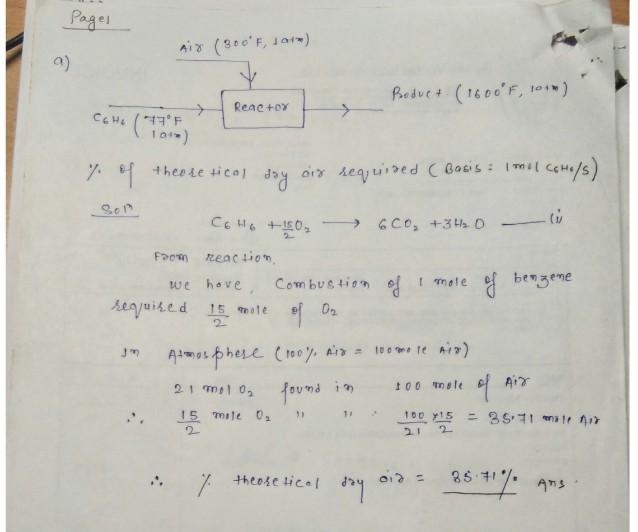 Page1
a)
Air (300°F, 1atm)
Reactor
Product (1600°F, 1atm)
C6H6 (77°F
1atm)
% of theoretical dry air required (Basis: 1 mol C6H6/s)
Solⁿ
C6H6 + 15/2 O2 → 6CO2 + 3H2O — (i)
From reaction.
we have, Combustion of 1 mole of benzene
required 15/2 mole of O2
In Atmosphere (100% Air = 100 mole Air)
21 mol O2 found in 100 mole of Air
∴ 15/2 mole O2 " " 100/21 × 15/2 = 35.71 mole Air
∴ % theoretical dry air = 35.71% Ans.